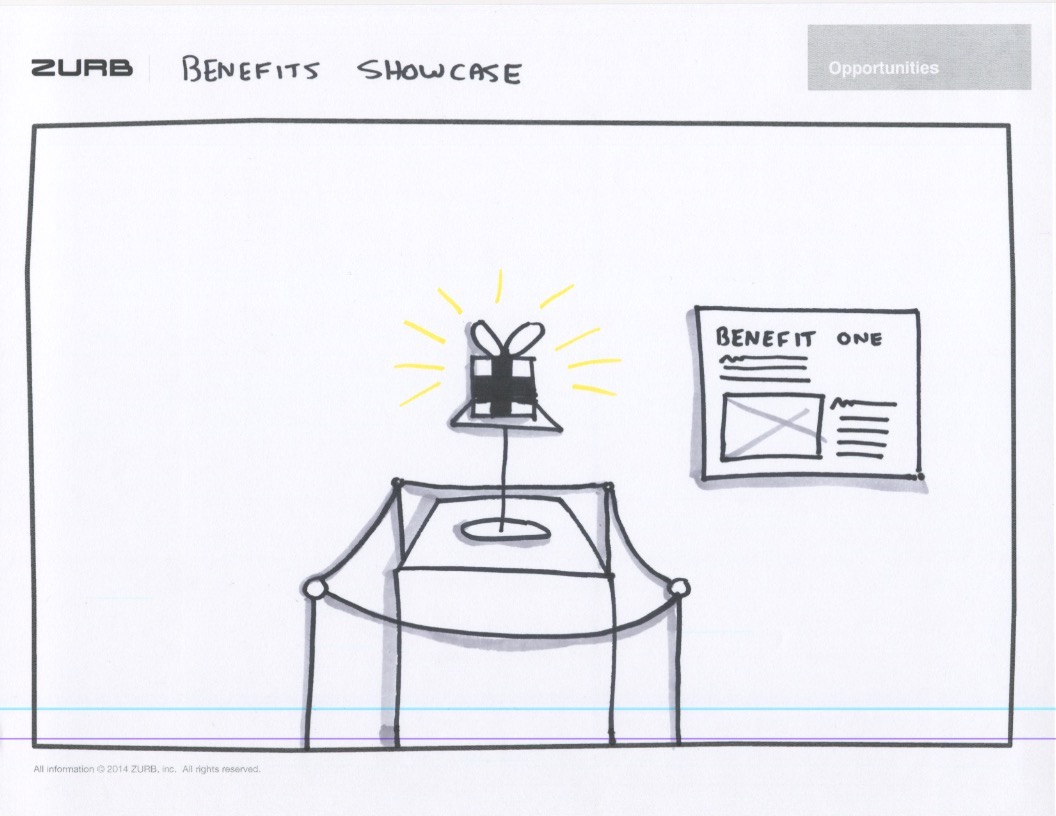 ZURB
BENEFITS SHOWCASE
Opportunities
BENEFIT ONE
All information © 2014 ZURB, inc. All rights reserved.